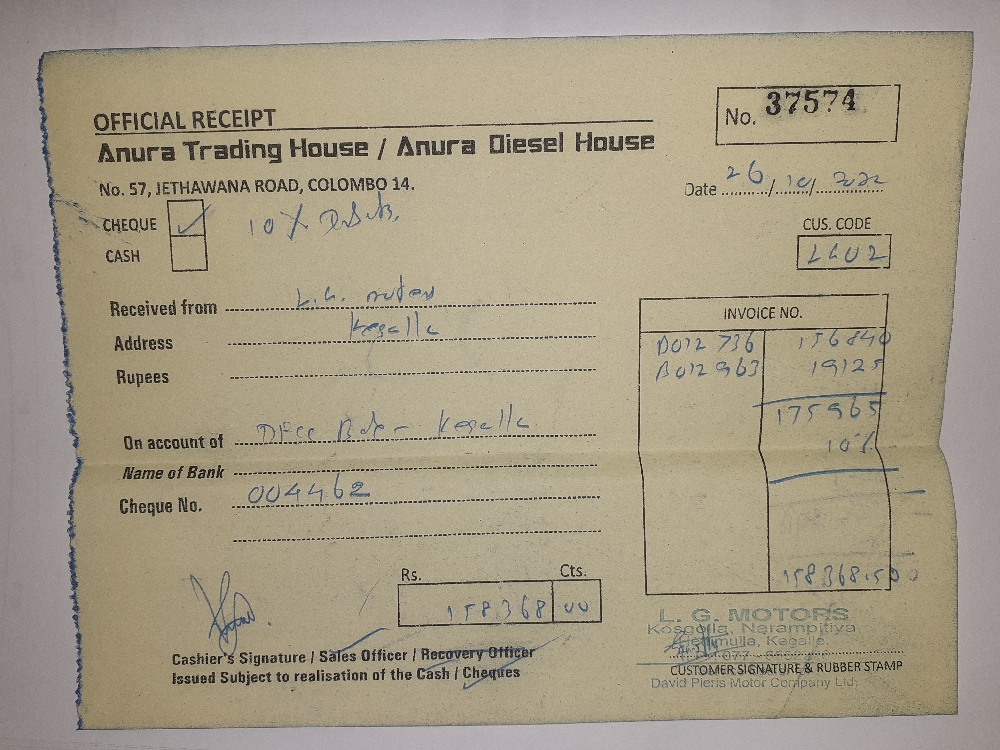 OFFICIAL RECEIPT
No. 37574
Anura Trading House / Anura Diesel House
No. 57, JETHAWANA ROAD, COLOMBO 14.
Date 26/10/2022
CHEQUE ✓ 10%
CUS. CODE
CASH
LL02
Received from L.G. Motors
Address Kegalle
Rupees
INVOICE NO.
B012 736 156840
B012963 19125
175965
10%
On account of Kegalle
Name of Bank
Cheque No. 004462
158368.50
Rs. Cts.
158368 00
L. G. MOTORS
Kosgolla, Narampitiya
Kegalle
Cashier's Signature / Sales Officer / Recovery Officer
CUSTOMER SIGNATURE & RUBBER STAMP
Issued Subject to realisation of the Cash / Cheques
David Pieris Motor Company Ltd.